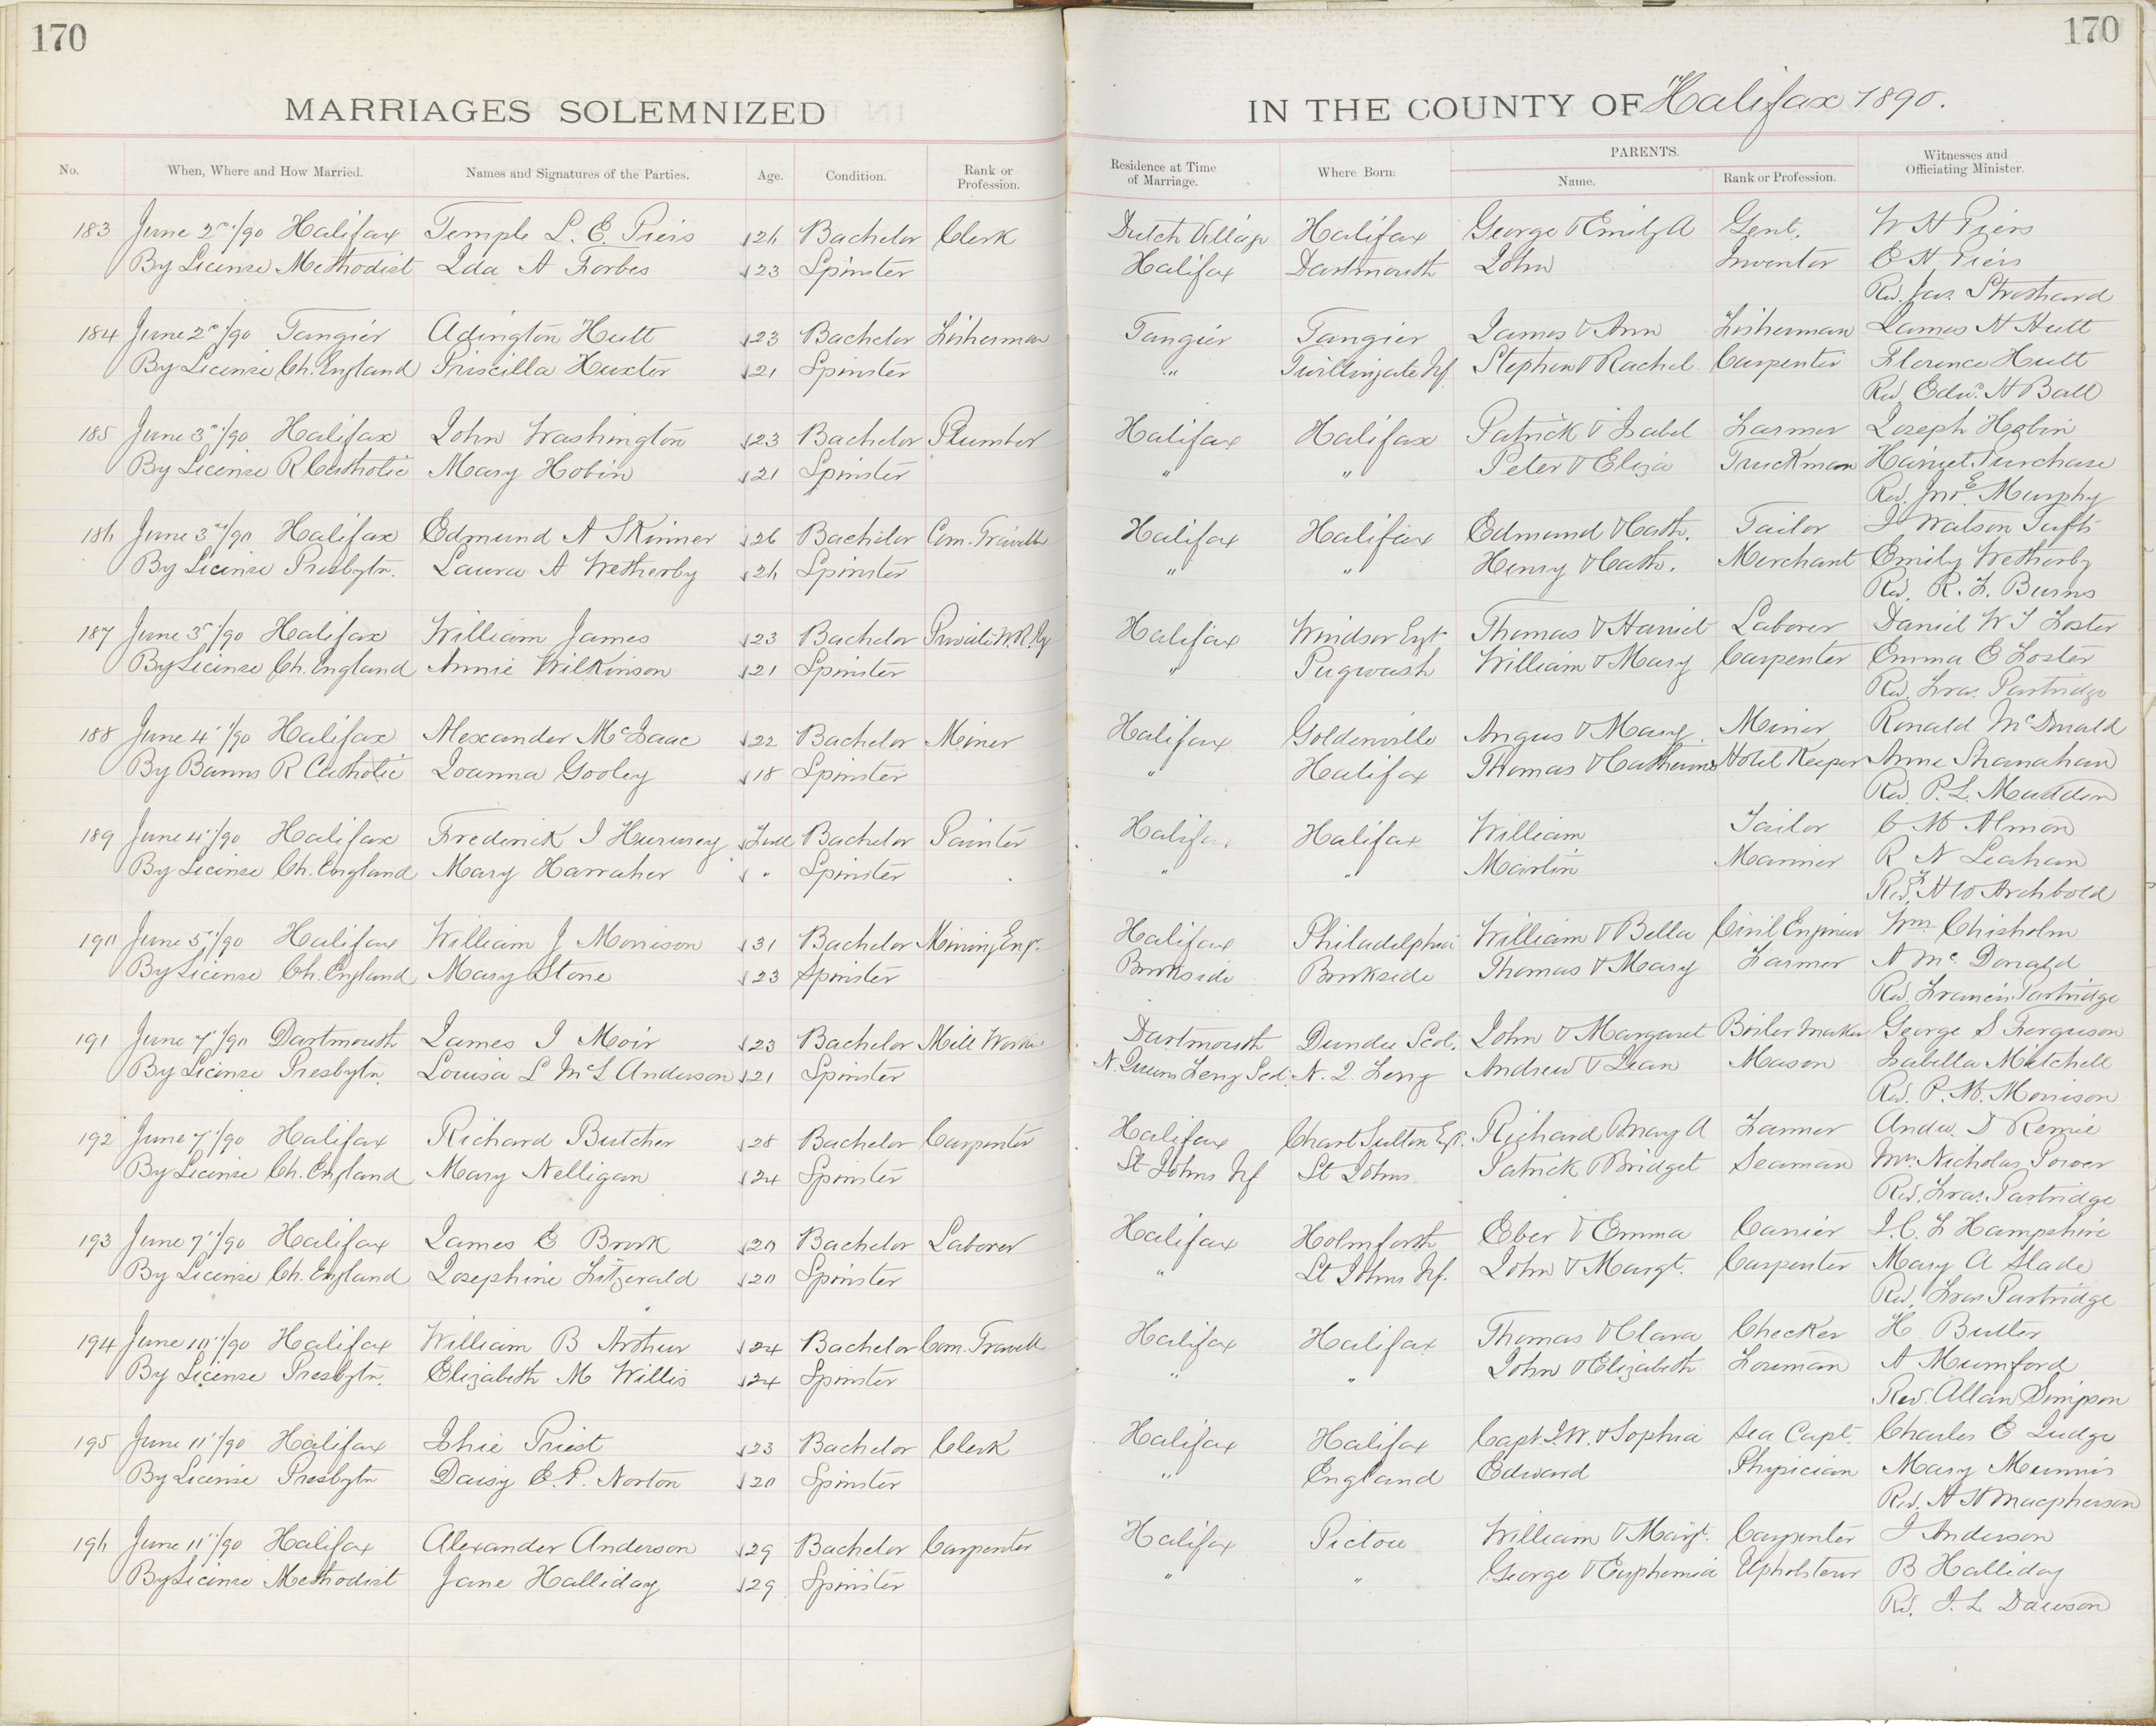 170
170
MARRIAGES SOLEMNIZED
IN THE COUNTY OF Halifax 1890.
No. When, Where and How Married. Names and Signatures of the Parties. Age. Condition. Rank or Profession. Residence at Time of Marriage. Where Born. PARENTS. Name. Rank or Profession. Witnesses and Officiating Minister.
183 June 2nd/90 Halifax Temple L. E. Piers 26 Bachelor Clerk Dutch Village Halifax George & Emily A Gent. W H Piers
By License Methodist Ida A Forbes 23 Spinster Halifax Dartmouth John Inventor E H Piers
Rev. Jas. Strothard
184 June 2nd/90 Tangier Adington Hutt 23 Bachelor Fisherman Tangier Tangier James & Ann Fisherman James H Hutt
By License Ch. England Priscilla Huxter 21 Spinster " Twillingate Nf Stephen & Rachel Carpenter Florence Hutt
Rev. Edw. H Ball
185 June 3rd/90 Halifax John Washington 23 Bachelor Plumber Halifax Halifax Patrick & Isabel Farmer Joseph Hobin
By License R Catholic Mary Hobin 21 Spinster " " Peter & Eliza Truckman Harriet Purchase
Rev. Jno E Murphy
186 June 3rd/90 Halifax Edmund A Skinner 26 Bachelor Com. Travellr Halifax Halifax Edmund & Cath. Tailor J Watson Tufts
By License Presbytn. Laura A Wetherby 26 Spinster " " Henry & Cath. Merchant Emily Wetherby
Rev. R. F. Burns
187 June 3/90 Halifax William James 23 Bachelor Private W. R. Rg Halifax Windsor Engt Thomas & Harriet Laborer Daniel W J Foster
By License Ch. England Annie Wilkinson 21 Spinster " Pugwash William & Mary Carpenter Emma E Foster
Rev. Fras. Partridge
188 June 4/90 Halifax Alexander McIsaac 22 Bachelor Miner Halifax Goldenville Angus & Mary Miner Ronald McDonald
By Banns R Catholic Joanna Gooley 18 Spinster " Halifax Thomas & Catherine Hotel Keeper Anne Shanahan
Rev. P. L. Madden
189 June 4/90 Halifax Frederick J Full Bachelor Painter Halifax Halifax William Tailor C M Almon
By License Ch. England Mary Harraher " Spinster " " Martin Mariner R N Leahan
Rev. F H W Archbold
190 June 5/90 Halifax William J Morrison 31 Bachelor Mining Engr. Halifax Philadelphia William & Bella Civil Engineer Wm Chisholm
By License Ch. England Mary Stone 23 Spinster Brookside Brookside Thomas & Mary Farmer A McDonald
Rev. Francis Partridge
191 June 7/90 Dartmouth James J Moir 23 Bachelor Mill Worker Dartmouth Dundee Scot. John & Margaret Boiler Maker George S Ferguson
By License Presbytn Louisa L McL Anderson 21 Spinster N. Queens Ferry Scot. N. Q. Ferry Andrew & Jean Mason Isabella Mitchell
Rev. P. M. Morrison
192 June 7/90 Halifax Richard Butcher 28 Bachelor Carpenter Halifax Chart Sutton Eng. Richard & Mary A Farmer Andw. D Remie
By License Ch. England Mary Nelligan 24 Spinster St Johns Nf St Johns Patrick & Bridget Seaman Mrs. Nicholas Power
Rev. Fras. Partridge
193 June 7/90 Halifax James E Brook 20 Bachelor Laborer Halifax Holmforth Eber & Emma Carrier J. C. F Hampshire
By License Ch. England Josephine Fitzgerald 20 Spinster " St Johns Nf. John & Margt. Carpenter Mary A Slade
Rev. Fras Partridge
194 June 10/90 Halifax William B Arthur 24 Bachelor Com. Travellr Halifax Halifax Thomas & Clara Checker H. Butler
By License Presbytn. Elizabeth M Willis 24 Spinster " " John & Elizabeth Foreman A Mumford
Rev. Allan Simpson
195 June 11/90 Halifax Priest 23 Bachelor Clerk Halifax Halifax Capt. J. W. & Sophia Sea Capt. Charles E Judge
By License Presbytn Daisy E. P. Norton 20 Spinster " England Edward Physician Mary
Rev. H H Macpherson
196 June 11/90 Halifax Alexander Anderson 29 Bachelor Carpenter Halifax Pictou William & Margt. Carpenter J Anderson
By License Methodist Jane Halliday 29 Spinster " " George & Euphemia Upholsterer B Halliday
Rev. J. L Dawson